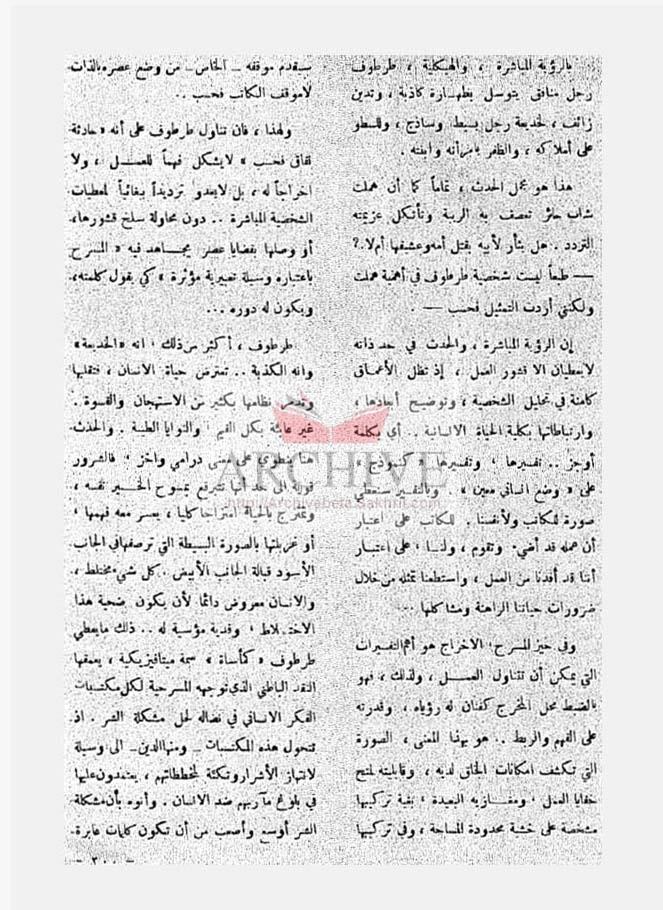 بالرؤية المباشرة ، والهيكلية ، طرطوف
رجل منافق يتوسل بطهارة كاذبة ، وتدين
زائف ، لخديعة رجل بسيط وساذج ، وللسطو
على أملاكه ، والظفر بامرأته وابنته .
هذا هو مجمل الحدث ، تماماً كما أن هملت
شاب حائر تعصف به الريبة وتأتكل عزيمته
التردد . هل يثأر لأبيه بقتل أمه وعشيقها أم لا.؟
— طبعاً ليست شخصية طرطوف في أهمية هملت
ولكنني أردت التمثيل فحسب — .
إن الرؤية المباشرة ، والحدث في حد ذاته
لا يعطيان الا قشور العمل ، إذ تظل الأعماق
كامنة في تحليل الشخصية ، وتوضيح أبعادها ،
وارتباطاتها بكلية الحياة الانسانية .. أي بكلمة
أوجز .. تفسيرها ، وتفسيرها ، كنموذج ،
على « وضع انساني معين » . وبالتفسير ستعطي
صورة للكاتب ولأنفسنا . للكاتب على اعتبار
أن عمله قد أضيء وتقوم ، ولنا ، على اعتبار
أننا قد أفدنا من العمل ، واستطعنا تمثله من خلال
ضرورات حياتنا الراهنة ومشاكلها ...
وفي حيز المسرح ، الاخراج هو أهم التفسيرات
التي يمكن أن تتناول العمل ، ولذلك ، فهو
بالضبط محل المخرج كفنان له رؤياه ، وقدرته
على الفهم والربط .. هو بهذا المعنى ، الصورة
التي تكشف امكانات الخلق لديه ، وقابليته لمنح
خفايا العمل ، ومغازيه البعيدة ، بغية تركيبها
مشخصة على خشبة محدودة المساحة ، وفي تركيبها
سيقدم موقفه – الخاص – من وضع عصره بالذات.
لا موقف الكاتب فحسب ..
ولهذا ، فان تناول طرطوف على أنه « حادثة
نفاق فحسب » لا يشكل فهماً للعمل ، ولا
اخراجاً له ، بل لا يعدو ترديداً ببغائياً لمعطيات
الشخصية المباشرة .. دون محاولة سلخ قشورها،
أو وصلها بقضايا عصر يجاهد فيه « المسرح
باعتباره وسيلة تعبيرية مؤثرة » كي يقول كلمته،
ويكون له دوره ...
طرطوف ، أكثر من ذلك ، انه « الخديعة »
وانه الكذبة .. تعترض حياة الانسان ، فتقلبها
نظامها بكثير من الاستهجان والقسوة .
غير عابئة بكل القيم ، والنوايا الطيبة . والحدث
هنا ينطوي على درامي واخز ، فالشرور
بمسوح الخير نفسه ،
وتمتزج بالحياة امتزاجاً كلياً ، يعسر معه فهمها ،
أو غربلتها بالصورة البسيطة التي ترصفها في الجانب
الأسود قبالة الجانب الأبيض . كل شيء مختلط ،
والانسان معروض دائماً لأن يكون ضحية هذا
الاختلاط ، وفدية مؤسية له .. ذلك ما يعطي
طرطوف « كمأساة » سمة ميتافيزيكية ، يعمقها
النقد الباطني الذي توجهه المسرحية لكل مكتسبات
الفكر الانساني في نضاله لحل مشكلة الشر . اذ
تتحول هذه المكتسبات – ومنها الدين – الى وسيلة
لانتهاز الأشرار وتكئة لمخططاتهم ، يعتمدون عليها
في بلوغ مآربهم ضد الانسان . وأنوه بأن مشكلة
الشر أوسع وأصعب من أن تكون كلمات عابرة.
– ٣٠٠ –
ARCHIVE
http://Archivebeta.Sakhrit.com